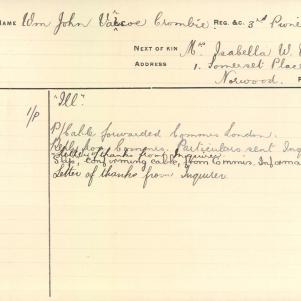 NAME Wm John Vascoe Crombie. REG. &C. 3rd Pione
NEXT OF KIN Mrs Isabella W.
ADDRESS 1. Somerset Place
Norwood.
"Ill".
1/P
P/Cable forwarded Commis London.
Reply from Commis. Particulars sent Inq
Letter of thanks from Inquirer.
Slip, confirming cable, from Commis. Informa
Letter of thanks from Inquirer